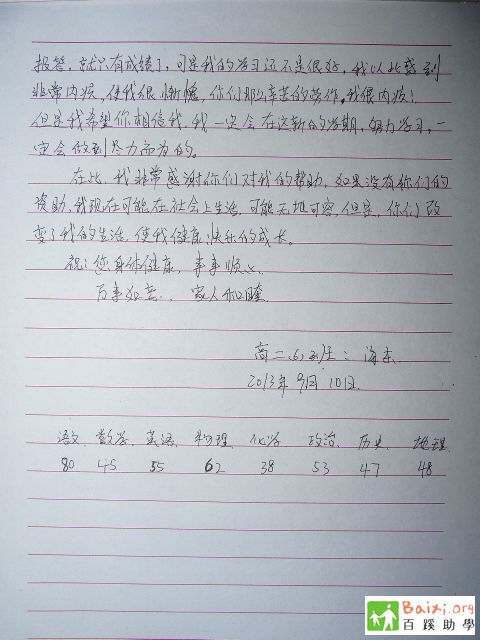 报答，就只有成绩了，可是我的学习还不是很好，我以此感到
非常内疚，使我很惭愧，你们那么辛苦的劳作，我很内疚！
但是我希望你相信我，我一定会在这新的学期，努力学习，一
定会做到尽力而为的。
在此，我非常感谢你们对我的帮助，如果没有你们的
资助，我现在可能在社会上生活，可能无地可容，但是，你们改
变了我的生活，使我健康，快乐的成长。
祝：您身体健康，事事顺心，
万事如意，家人和睦。
高二、6、班：海东
2013年9月10日
语文 数学 英语 物理 化学 政治 历史 地理
80 45 55 62 38 53 47 48
Baixi.org
百蹊助學